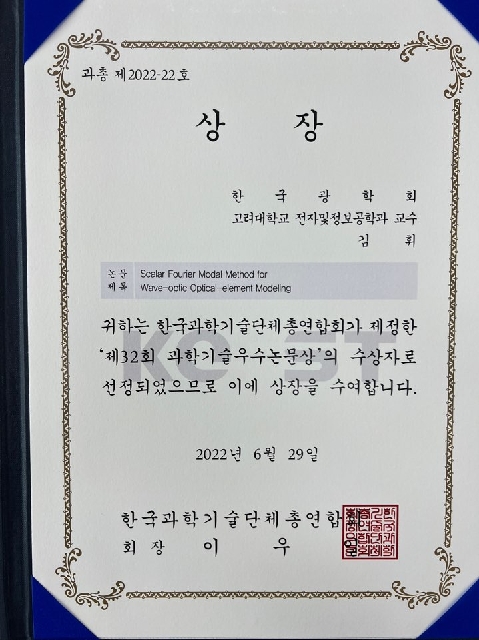 과총 제2022-22호
상 장
한국광학회
고려대학교 전자및정보공학과 교수
김 휘
논문 제목
Scalar Fourier Modal Method for
Wave-optic Optical-element Modeling
귀하는 한국과학기술단체총연합회가 제정한
'제32회 과학기술우수논문상'의 수상자로
선정되었으므로 이에 상장을 수여합니다.
2022년 6월 29일
한국과학기술단체총연합
회 장 이 우